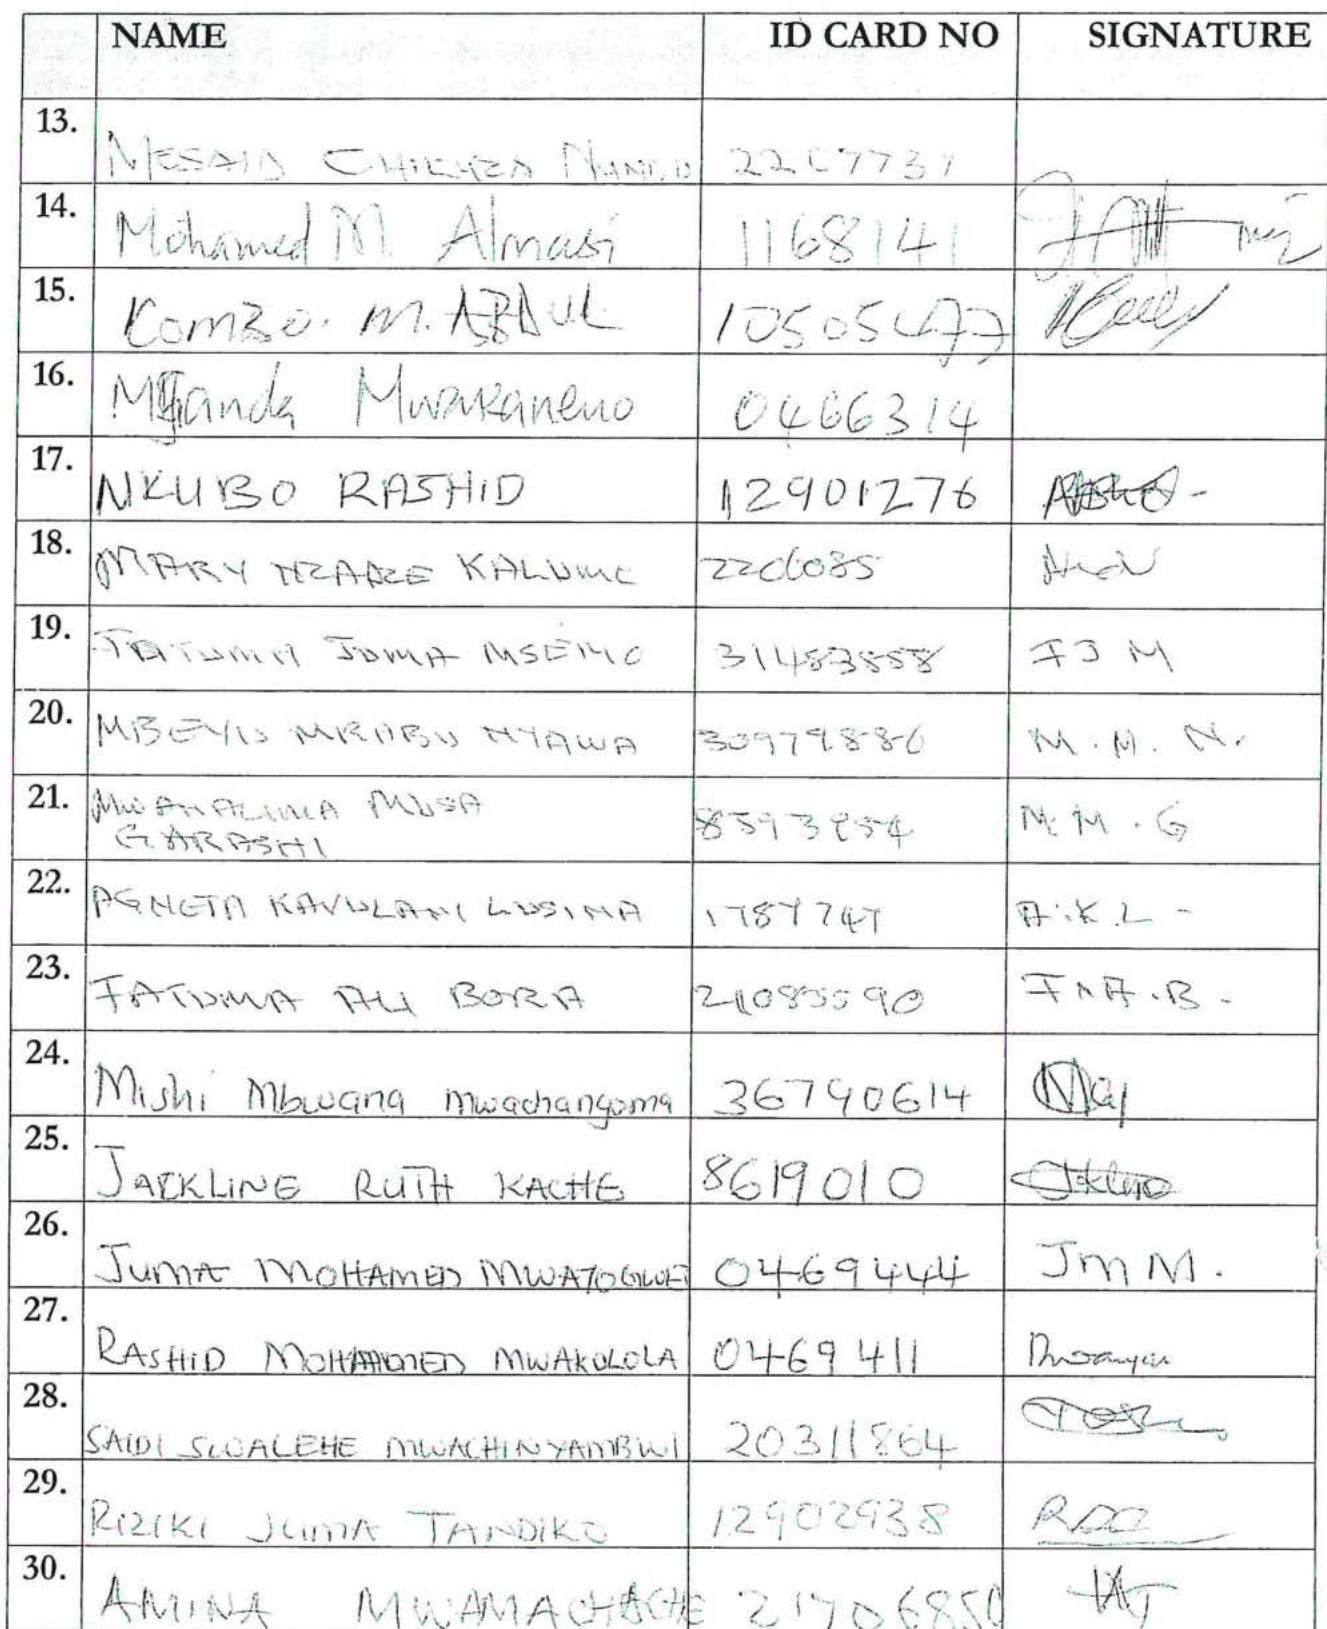 NAME ID CARD NO SIGNATURE
13. MESAID
14. Mohamed M. Almasi 1168141
15. KomBo. M. ABDUL
16. 0466314
17. NKUBO RASHID 12901276
18. MARY NZADZE KALUME 2206085
19. FATUMA JUMA MSEMO F J M
20. NYAWA 30979886 M. M. N.
21. MWANALIMA MUSA M. M. G
GARASHI
22. AGNETA KAVULANI LUSINA 1787747 A. K. L -
23. FATUMA ALI BORA 21085590 F A. B -
24. Mishi Mbwana mwachangoma 36790614
25. JACKLINE RUTH KACHE 8619010
26. JUMA MOHAMED 0469444 JM M.
27. RASHID MOHAMMED MWAKULOLA 0469411
28. SAIDI SWALEHE MWACHINYAMBWI 20311864
29. RIZIKI JUMA TANDIKO 12902938
30. AMINA